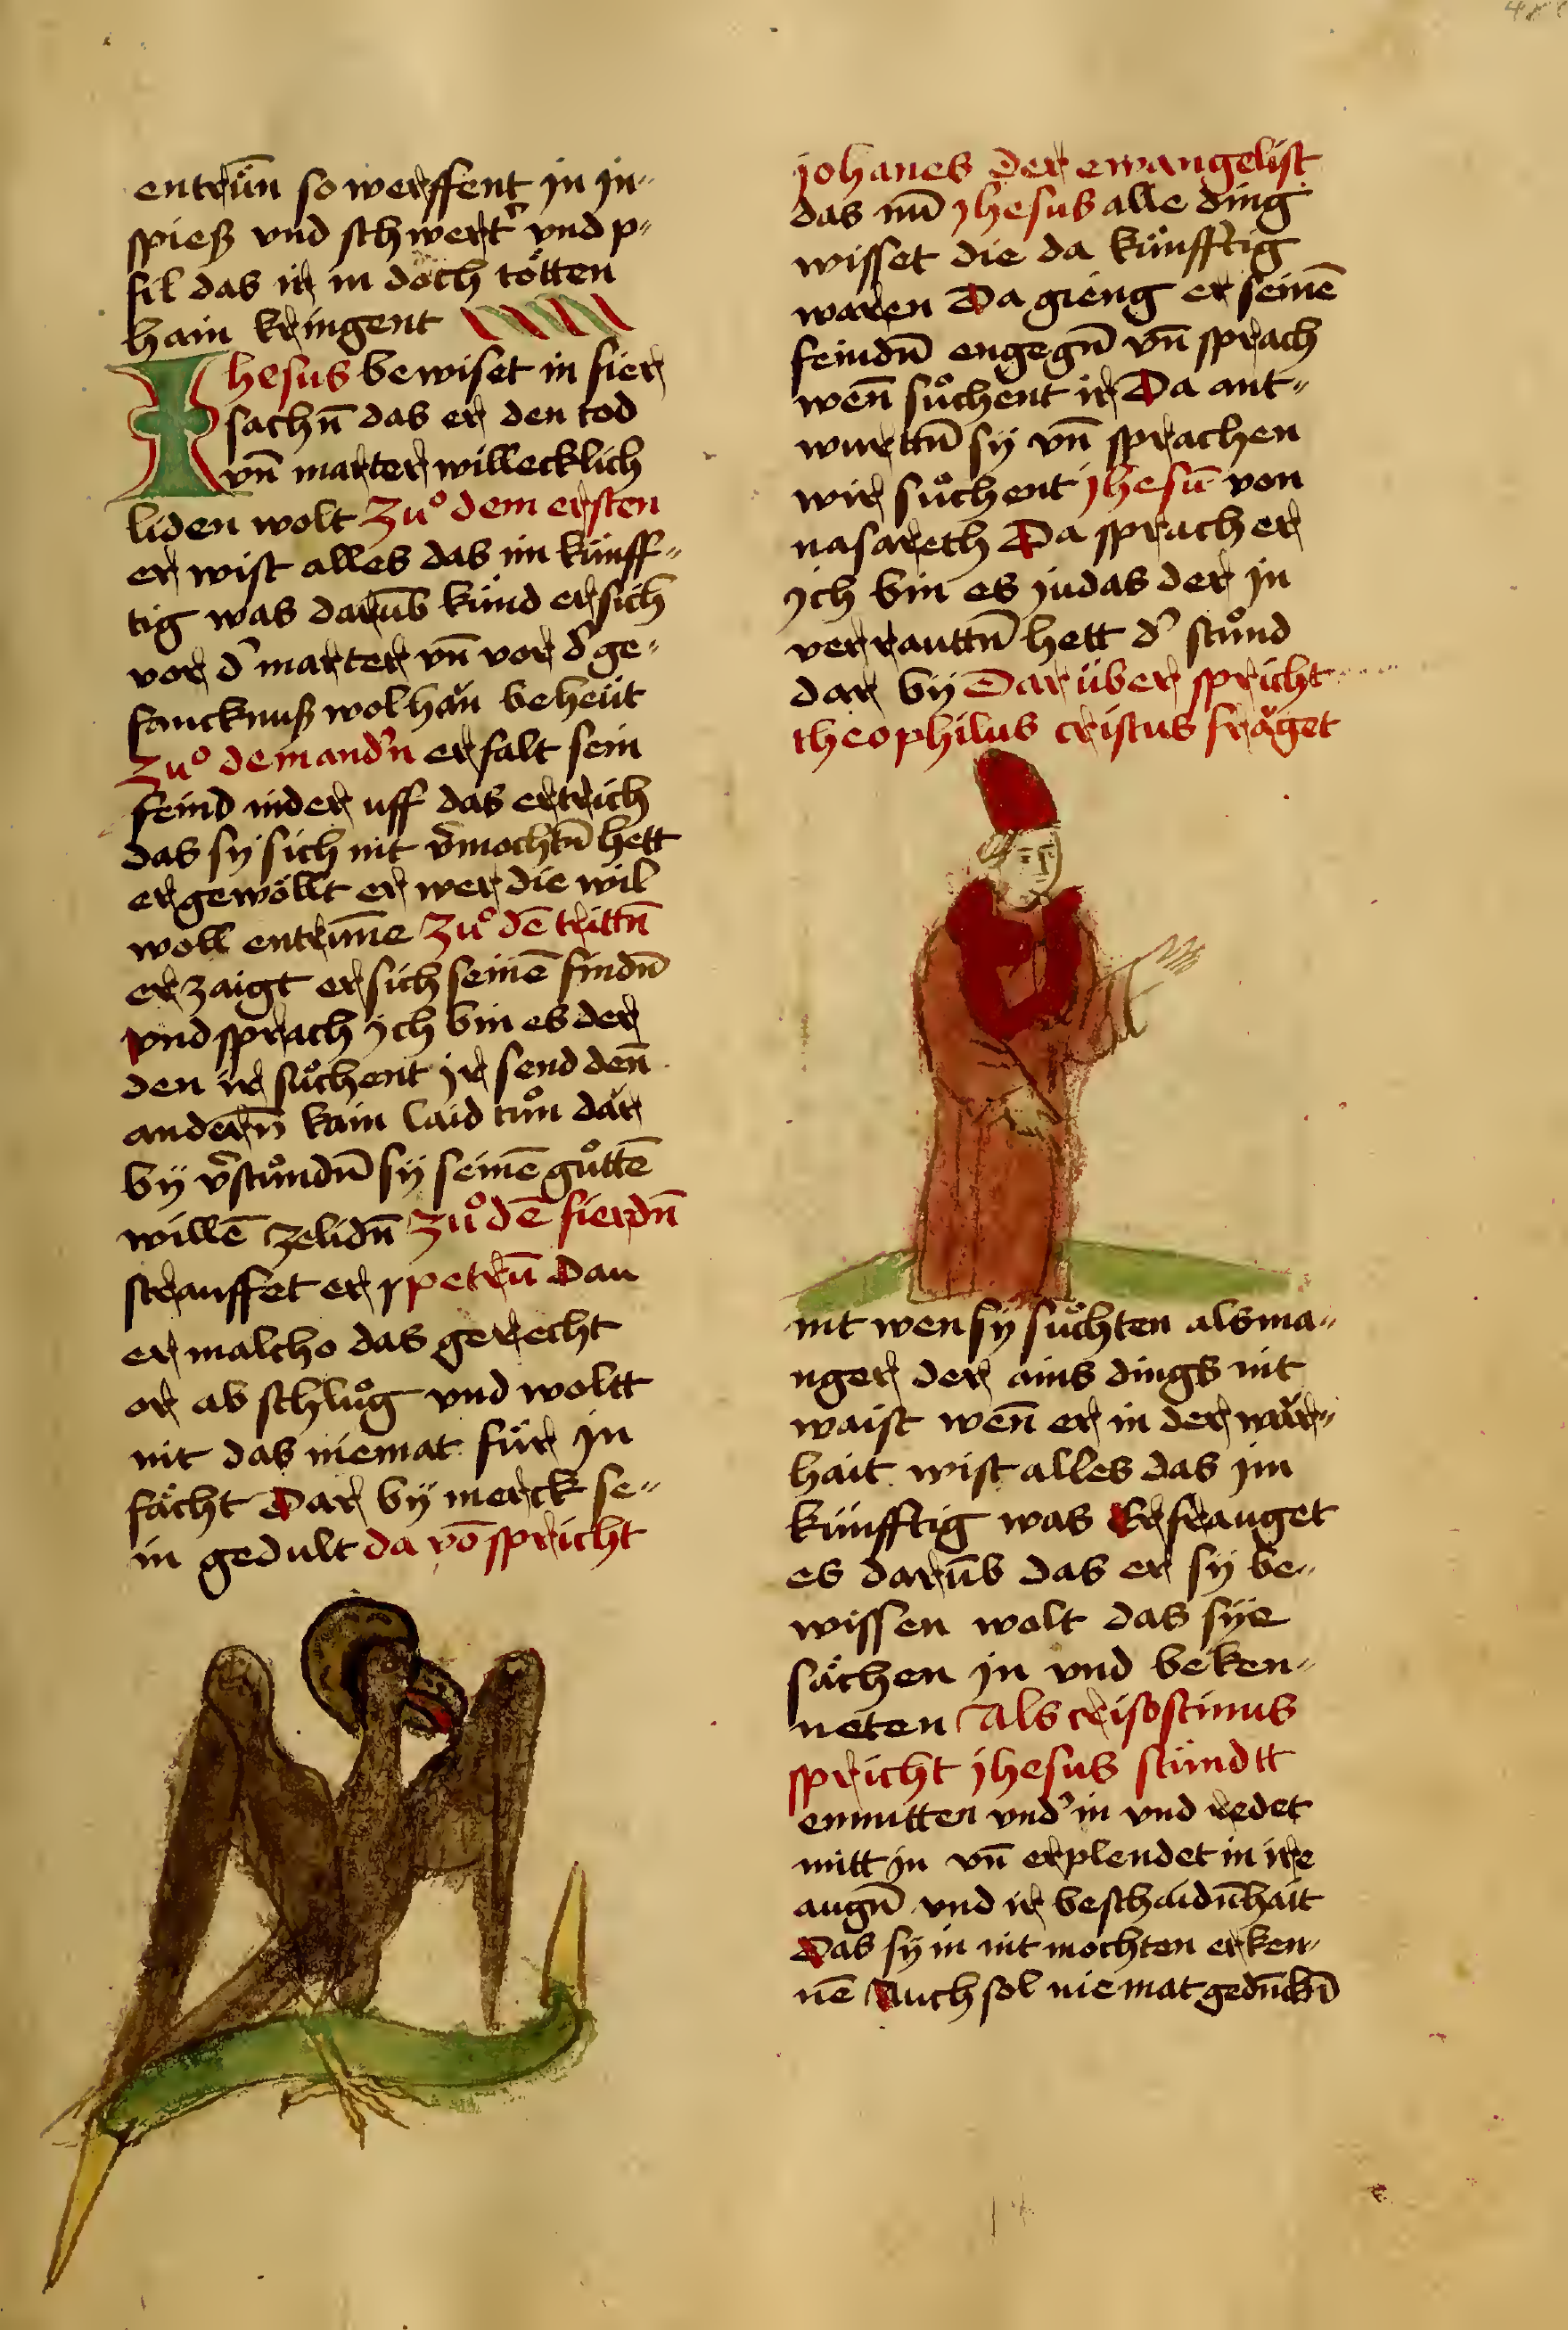 entrün̄ so werffent jn jn„
spieß vnd schwert᷑ vnd p„
fil das ir in doch tötten
hain kringent
Jhesus bewiset in fier
sachn̄ das er den tod
vn̄ marter willecklich
liden wolt Zuͦ dem ersten
er wist alles das im künff„
tig was darūb künd er sich
vor d᷑ marter vn̄ vor d᷑ ge„
fancknuß wol hän beheüt
Zuͦ dem and᷑n er falt sein
feind nider uff das ertrich
das sy sich nit v᷑mochtn̄ hett
er gewöllt er wer die wil
woll entrin̄e Zuͦ dē trittn̄
er zaigt er sich seinē findn̄
vnd sprach jch bin es der
den ir suͦchent jr send den̄
andern̄ kain laid tuͦn dar
bÿ v᷑stuͦndn̄ sÿ seinē guͦttē
willē zelidn̄ Zuͦ dē fierdn̄
strauffet er petrū Dau
er malcho das gerecht
or ab schluͦg vnd woltt
nit das niemat für jn
fächt Dar bÿ merck se„
in gedult da vō spricht
johanes der ewangelist
das nū jhesus alle ding
wisset die da künfftig
waren Da gieng er seinē
feindn̄ engegn̄ vn̄ sprach
wen̄ suͦchent ir Da ant„
wurttn̄ sÿ vn̄ sprachen
wir suͦchent jhesū von
nasareth Da sprach er
jch bin es judas der jn
verrauttn̄ hett d᷑ stuͦnd
dar bÿ Darüber spricht
theophilus cristus fräget
nit wen sÿ suͦchten als ma„
nger der ains dings nit
waist wen̄ er in der wär„
hait wist alles das jm
künfftig was Er frauget
es darūb das er sÿ be„
wissen wolt das sÿe
sächen jn vnd beken„
neten Als crisostimus
spricht jhesus stündtt
enmitten vnd᷑ in vnd redet
mitt jn vn̄ erplendet in ire
augn̄ vnd ir beschaidn̄hait
Das sÿ in nit mochten erken„
nē Auch sol niemat gedn̄ckn̄